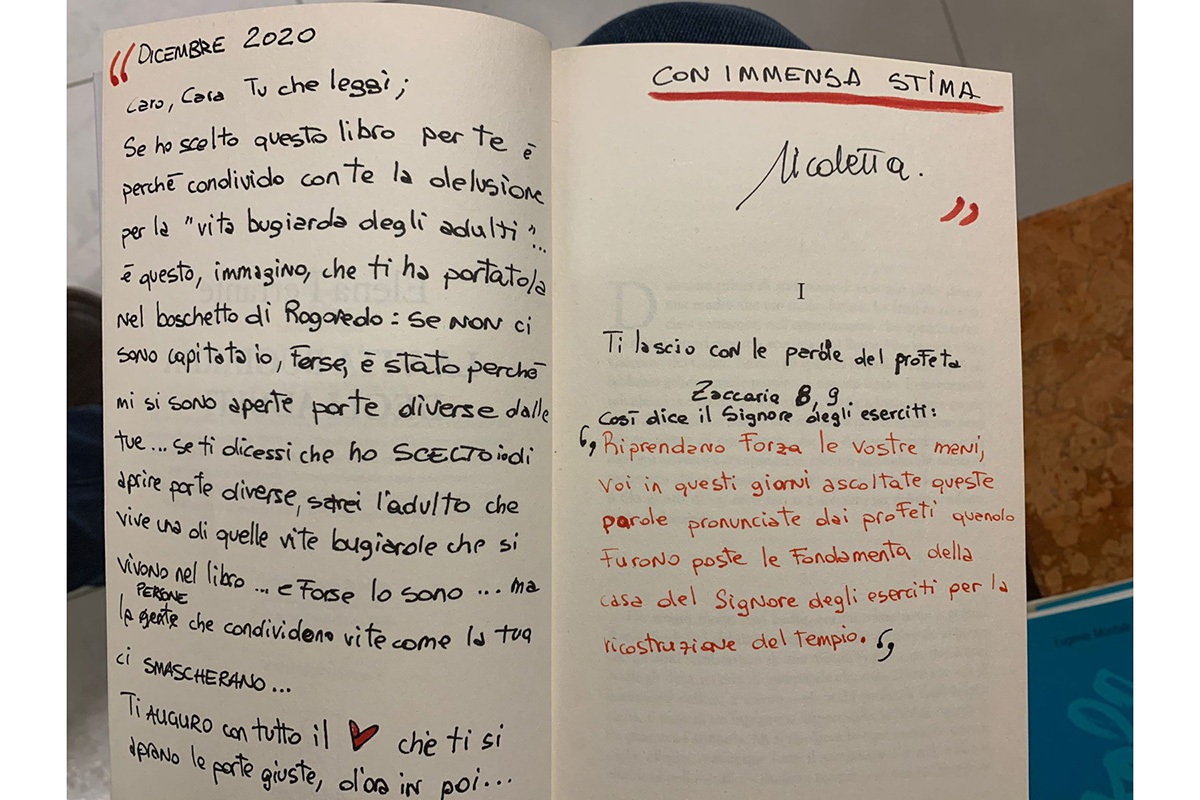 “ DICEMBRE 2020
Caro, Cara Tu che leggi;
Se ho scelto questo libro per te è
perchē condivido con te la delusione
per la "vita bugiarda degli adulti"...
ē questo, immagino, che ti ha portato/a
nel boschetto di Rogoredo: se NON ci
sono capitata io, Forse, ē stato perchē
mi si sono aperte porte diverse dalle
tue... se ti dicessi che ho SCELTO io di
aprire porte diverse, sarei l'adulto che
vive una di quelle vite bugiarde che si
vivono nel libro... e Forse lo sono... ma
PERONE
le gente che condividono vite come la tua
ci SMASCHERANO...
Ti AUGURO con tutto il ♥ chè ti si
aprano le porte giuste, d'ora in poi...
CON IMMENSA STIMA
Nicoletta.
”
I
Ti lascio con le parole del profeta
Zaccaria 8, 9
Così dice il Signore degli eserciti:
“Riprendano Forza le vostre mani,
voi in questi giorni ascoltate queste
parole pronunciate dai profeti quando
Furono poste le Fondamenta della
casa del Signore degli eserciti per la
ricostruzione del tempio.”